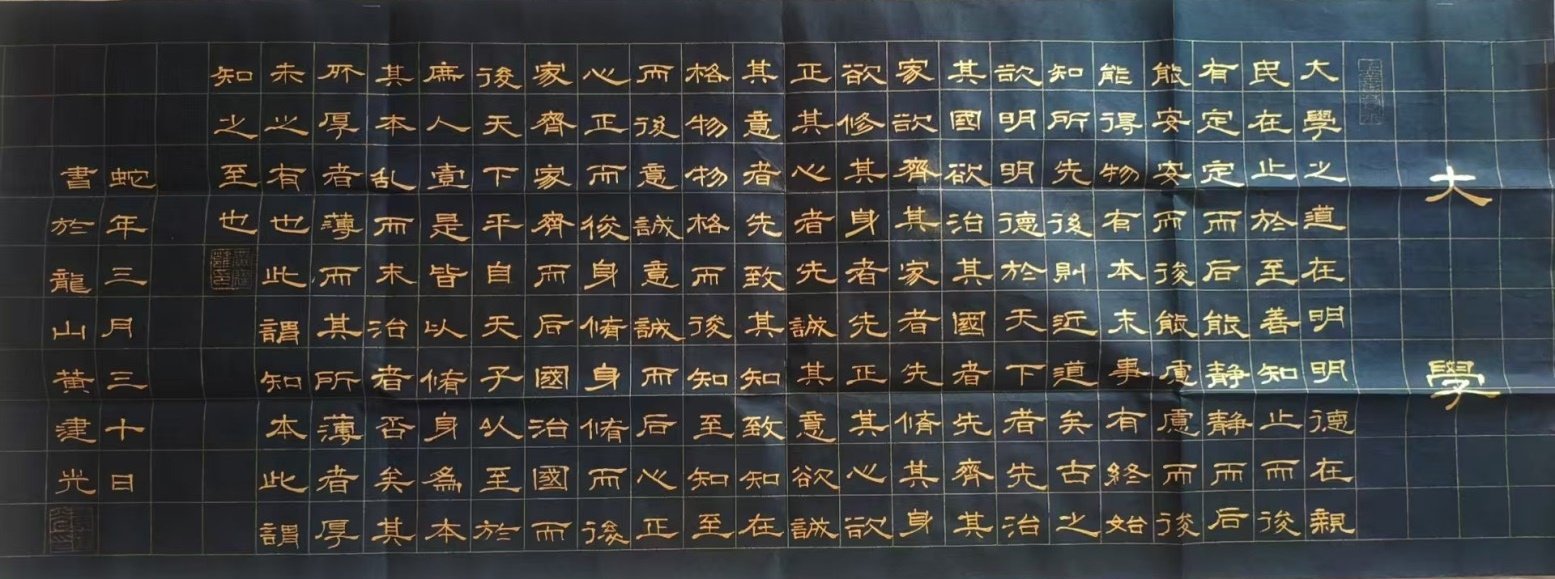 大學
大學之道在明明德在親
民在止於至善知止而後
有定定而后能静静而后
能安安而後能慮慮而後
能得物有本末事有終始
知所先後則近道矣古之
欲明明德於天下者先治
其國欲治其國者先齊其
家欲齊其家者先脩其身
欲修其身者先正其心欲
正其心者先誠其意欲誠
其意者先致其知致知在
格物物格而後知至知至
而後意誠意誠而后心正
心正而後身脩身脩而後
家齊家齊而后國治國而
後天下平自天子以至於
庶人壹是皆以脩身為本
其本乱而末治者否矣其
所厚者薄而其所薄者厚
未之有也此謂知本此謂
知之至也
蛇年三月三十日
書於龍山黄建光